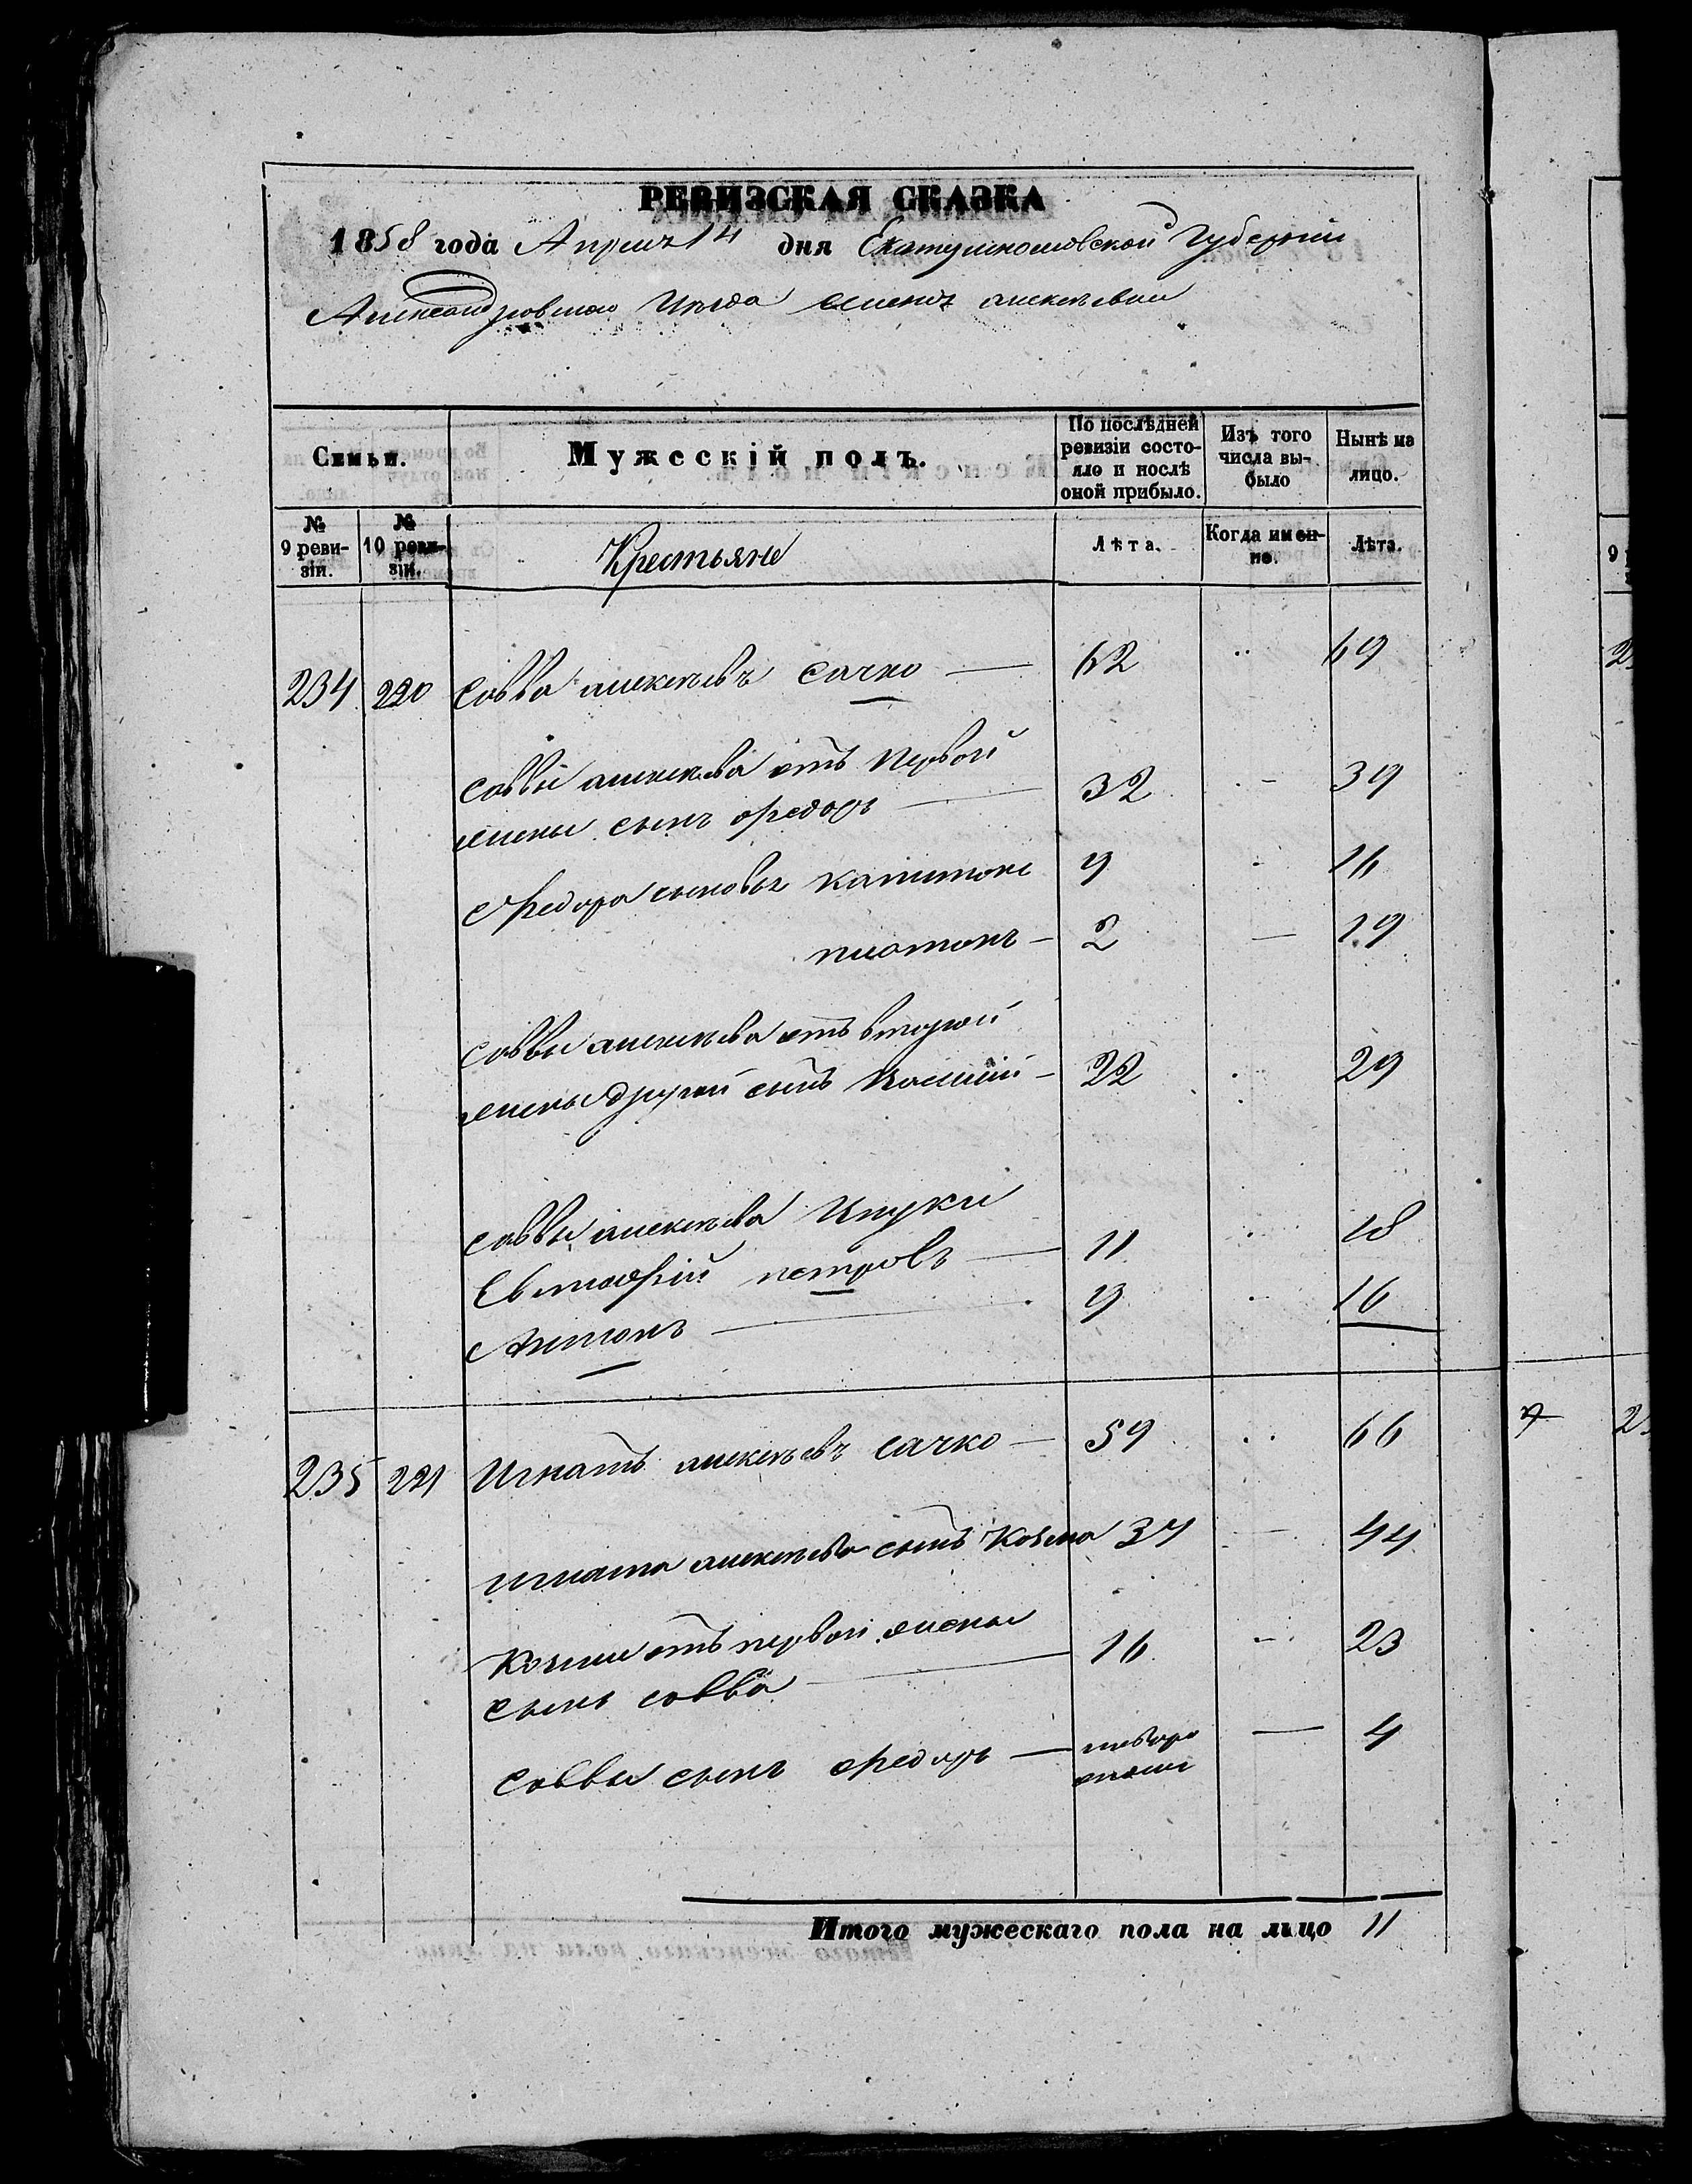 РЕВИЗСКАЯ СКАЗКА
1858 года Апреля 14 дня Екатеринославской Губернии
Александровского Уезда алексеевки
Семьи.
Мужескій полъ.
По послѣдней ревизіи состояло и послѣ оной прибыло.
Изъ того числа выбыло
Нынѣ на лицо.
№ 9 ревизіи.
№ 10 ревизіи.
Крестьяне
Лѣта.
Когда именно.
Лѣта.
234 220 Савва алексѣевъ Сачко — 62 69
Саввы алексѣева отъ первой
жены сынъ Федоръ — 32 - 39
Федора сыновья капитонъ 9 - 16
платонъ - 2 — 19
Саввы алексѣева отъ второй
жены другой сынъ Василій - 22 29
Саввы алексѣева Внуки
Евстафій петровъ — 11 18
Антонъ — 9 16
235 221 Игнатъ алексѣевъ Сачко — 59 66
Игната алексѣева сынъ Козма 37 — 44
Козмы отъ первой жены
сынъ Савва — 16 - 23
Саввы сынъ Федоръ — — 4
Итого мужескаго пола на лицо 11
9